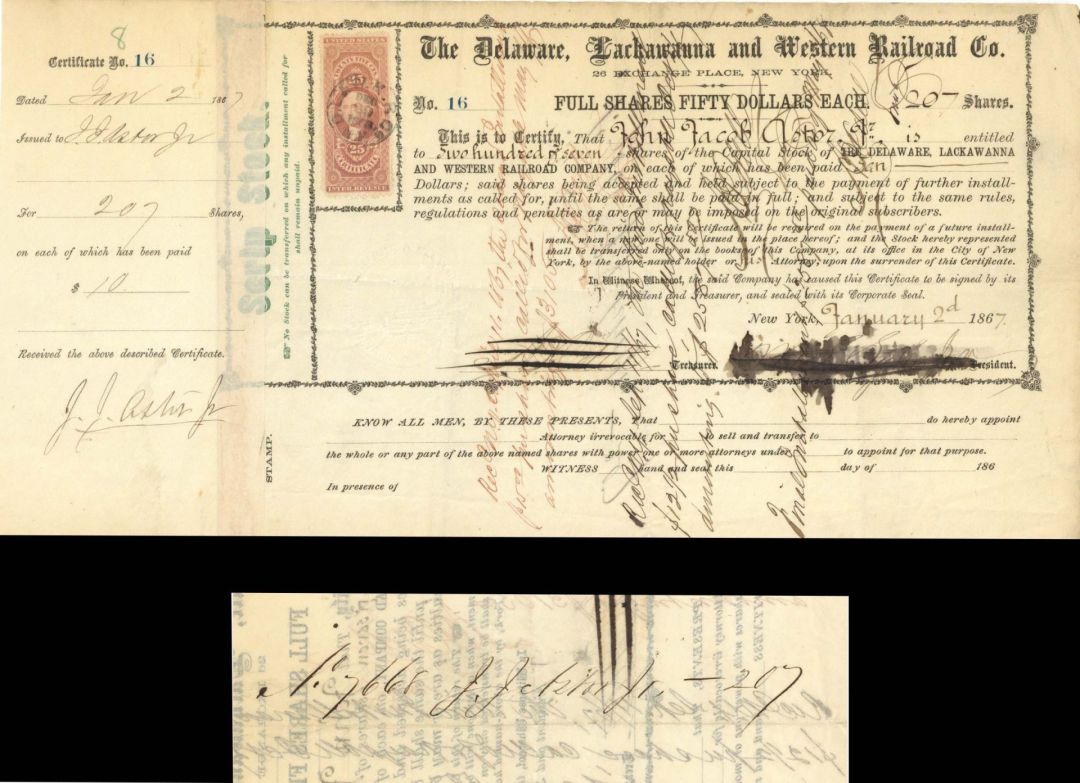 8
Certificate No. 16
Dated Jan 2 1867
Issued to J J Astor Jr
For 207 Shares,
on each of which has been paid
$ 10
Received the above described Certificate.
J. J. Astor Jr
Scrip Stock.
No Stock can be transferred on which any installment called for
shall remain unpaid.
STAMP.
UNITED STATES
25
25
CERTIFICATE
INTER. REVENUE
The Delaware, Lackawanna and Western Railroad Co.
26 EXCHANGE PLACE, NEW YORK.
No. 16 FULL SHARES FIFTY DOLLARS EACH. 207 Shares.
This is to Certify, That John Jacob Astor, Jr. is entitled
to Two hundred & seven shares of the Capital Stock of THE DELAWARE, LACKAWANNA
AND WESTERN RAILROAD COMPANY, on each of which has been paid Ten
Dollars; said shares being accepted and held subject to the payment of further install-
ments as called for, until the same shall be paid in full; and subject to the same rules,
regulations and penalties as are or may be imposed on the original subscribers.
The return of this Certificate will be required on the payment of a future install-
ment, when a new one will be issued in the place hereof; and the Stock hereby represented
shall be transferred only on the books of the Company, at its office in the City of New
York, by the above-named holder or Attorney, upon the surrender of this Certificate.
In Witness Whereof, the said Company has caused this Certificate to be signed by its
President and Treasurer, and sealed with its Corporate Seal.
New York, January 2d 1867.
Treasurer President.
KNOW ALL MEN, BY THESE PRESENTS, That do hereby appoint
Attorney irrevocable for sell and transfer to
the whole or any part of the above named shares with power one or more attorneys under to appoint for that purpose.
WITNESS hand and seal this day of 186
In presence of
No 7668 J. J. Astor Jr. — 207